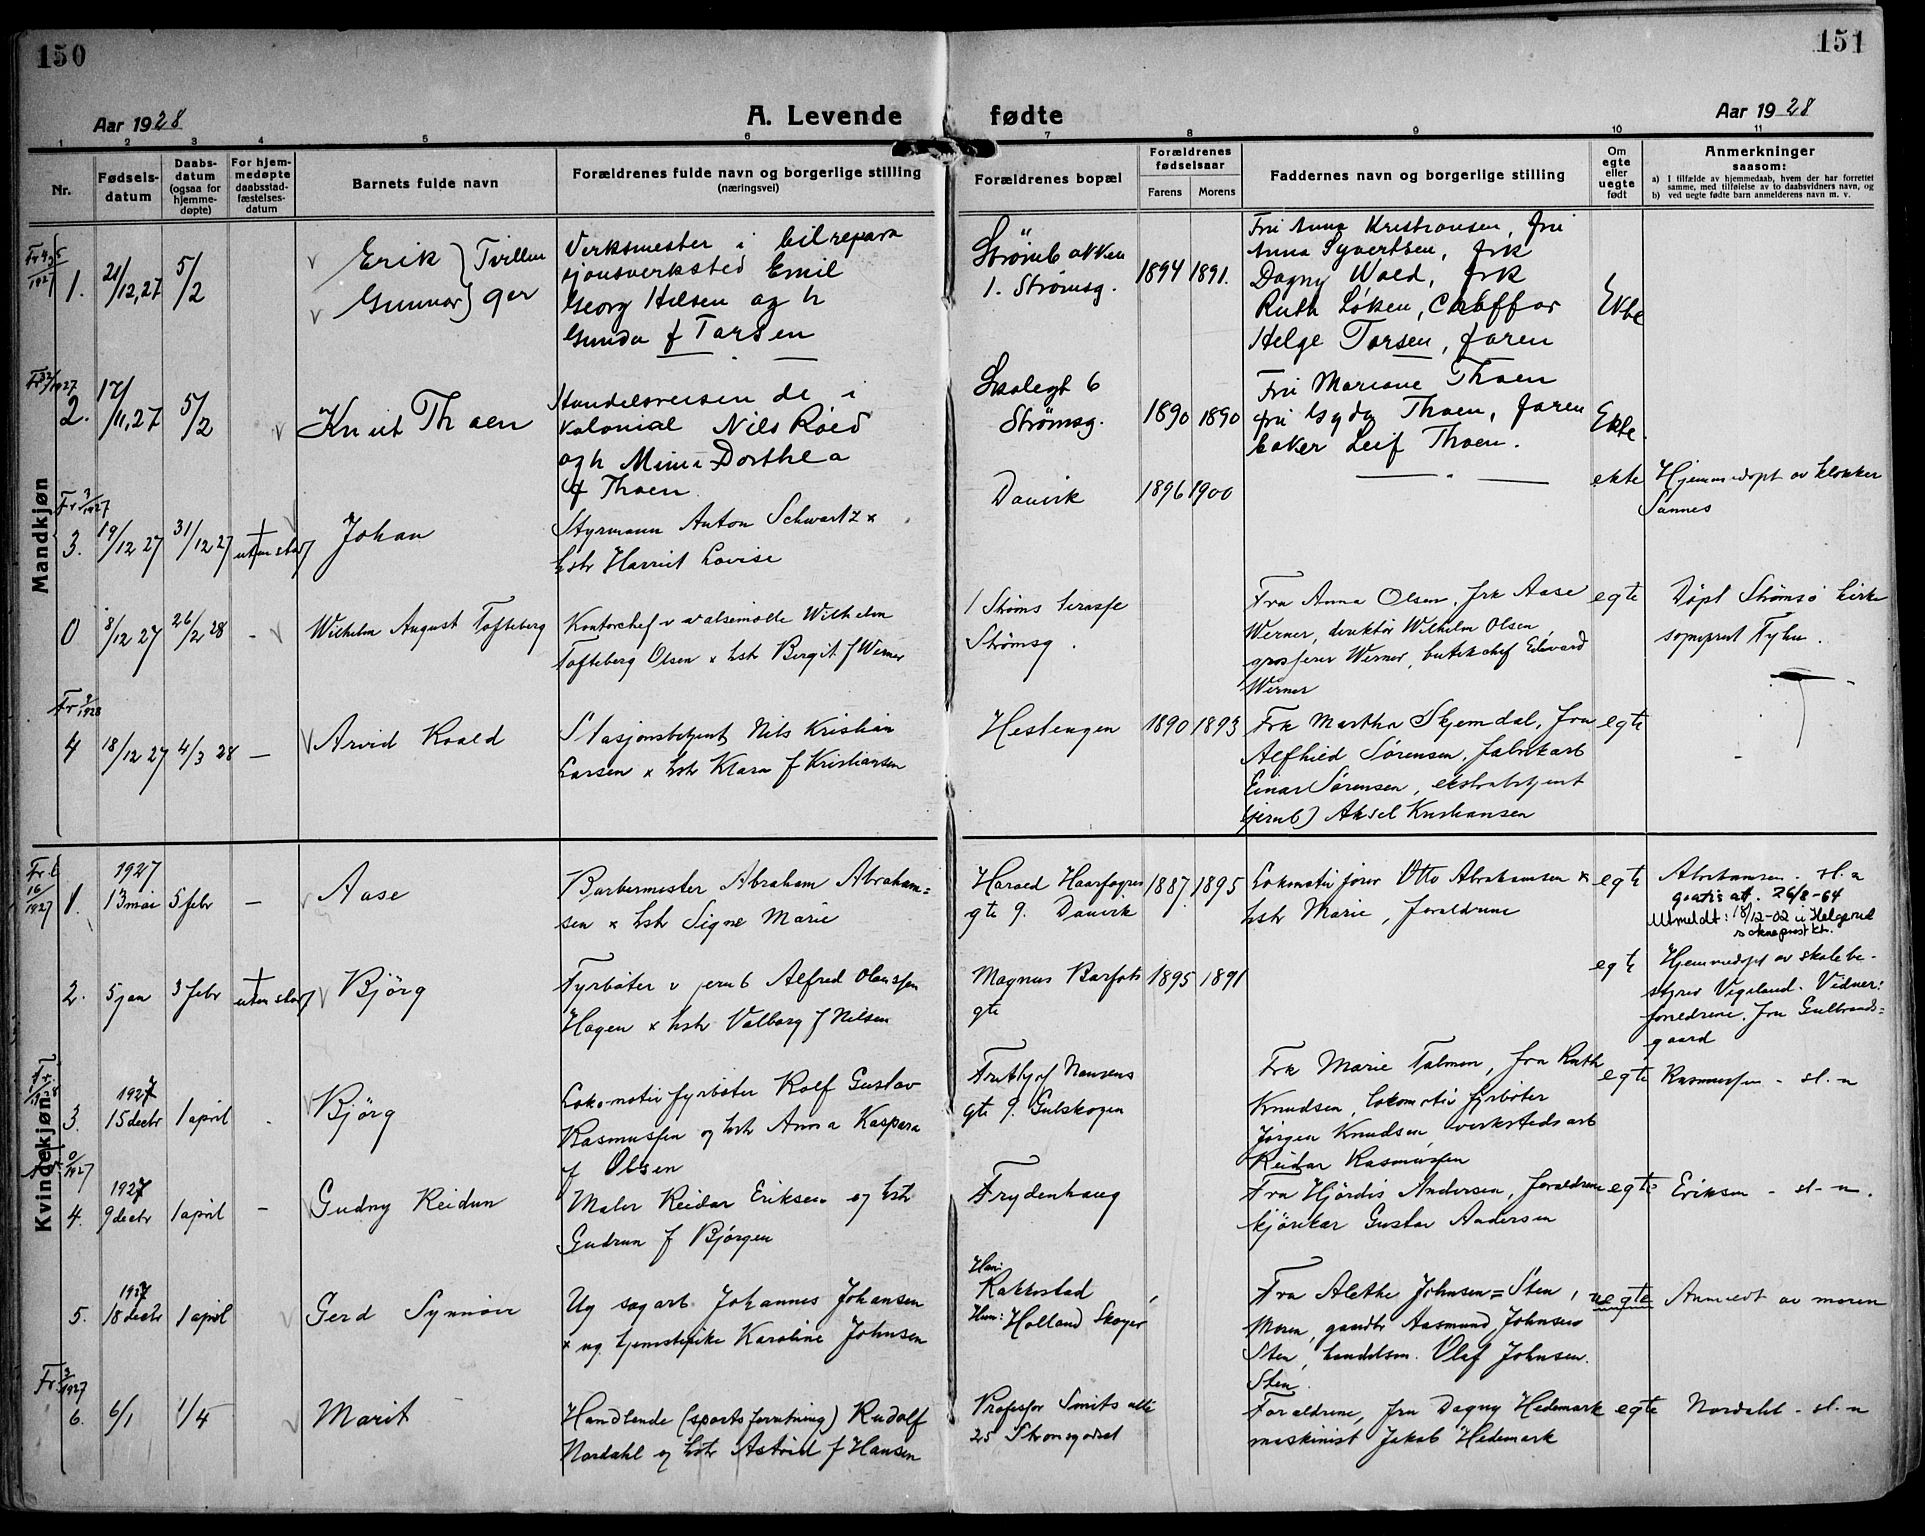 150
151
Aar 1928
A. Levende
fødte
Aar 1928
1 2 3 4 5 6 7 8 9 10 11
Nr.
Fødsels-
datum
Daabs-
datum
(ogsaa for
hjemme-
døpte)
For hjem-
medøpte
daabsstad-
fæstelses-
datum
Barnets fulde navn
Forældrenes fulde navn og borgerlige stilling
(næringsvei)
Forældrenes bopæl
Forældrenes
fødselsaar
Farens
Morens
Faddernes navn og borgerlige stilling
Om
egte
eller
uegte
født
Anmerkninger
saasom:
a) I tilfælde av hjemmedaab, hvem der har forrettet
samme, med tilføielse av to daabsvidners navn, og
b) ved uegte fødte barn anmelderens navn m. v.
Mandkjøn
1. 21/12,27 5/2
Erik } Tvillin
Gunnar } ger
Verksmester i bilrepara
sjonsverksted Emil
Georg Hilsen og h
Gunda f Tarsen
Strömbakken
1. Strømsg.
1894 1891.
Fru Anna Kristiansen, fru
Anna Syvertsen, frk
Dagny Wold, frk
Ruth Løken, Chaffør
Helge Torsen, faren
Ekte
2. 17/11,27 5/2
Knut Thoen
Handelsreisen de i
Kolonial Nils Röed
og h Mina Dorthea
f Thoen
Skolegt 6
Strømsg.
1890 1890
Fru Mariane Thoen
fru Gyda Thoen, faren
baker Leif Thoen.
Ekte.
3. 19/12 27 31/12 27
Johan
Styrmann Anton Schwartz x
hstr Harriet Lovise
Danvik
1896 1900
ekte
Hjemmedöpt av klokker
Sannes
0 8/12 27 26/2 28 -
Wilhelm August Tofteberg
Kontorchef v valsemølle Wilhelm
Tofteberg Olsen x hstr Bergit f Werner
1 Strøms terasse
Strømsg.
Fru Anna Olsen, frk Aase
Werner, direktör Wilhelm Olsen
grosserer Werner, butikchef Edvard
Werner
egte
Döpt Strømsö kirke
sogneprest Tyhn.
4 18/12 27 4/3 28 -
Arvid Roald
Stasjonsbetjent Nils Kristian
Larsen x hstr Klara f Kristiansen
Hestengen
1890 1893
Frk Martha Skjemdal, fru
Alfhild Sørensen, fabrikarb
Einar Sørensen, ekstrabetjent
(jernb) Aksel Kristiansen
egte
Kvindekjøn
1927
1. 13 mai 5 febr -
Aase
Barbermester Abraham Abraham=
sen x hstr Signe Marie
Harald Haarfagres
gte 9. Danvik
1887. 1895
Lokomotivfører Otto Abrahamsen x
hstr Marie, foreldrene
egte
Abrahamsen. sl. n
gratis att. 26/8-64
Utmeldt: 18/12-02 i Helgerud
sokneprest kt.
2. 5 jan 3 febr
Bjørg
Fyrbøter v jernb Alfred Olaussen
Hagen x hstr Valborg f Nilsen
Magnus Barfots
gte
1895 1891
egte
Hjemmedøpt av skolebe-
styrer Vigeland. Vidner:
foreldrene. fru Gulbrands=
gaard
1927
3. 15 decbr 1 april
Bjørg
Lokomotivfyrbøter Rolf Gustav
Rasmussen og hstr Anna Kaspara
f Olsen
Fritjof Nansens
gte 9. Gulskogen
Frk Marie Talmon, fru Ruth
Knudsen, Lokomotivfyrbøter
Jørgen Knudsen, verkstedsarb
Reidar Rasmussen
egte
Rasmussen - sl. n
1927
4. 9 decbr 1 april -
Gudny Reidun
Maler Reidar Eriksen og hstr
Gudrun f Bjørgen
Frydenhaug
Fru Hjördis Andersen, foreldrene
kjörekar Gustav Andersen
egte
Eriksen - sl. n.
1927
5. 18 decbr 1 april
Gerd Synnöve
Ug sagarb Johannes Johansen
x ug tjenestepike Karoline Johnsen
Han:
Rakkestad
Hun: Holland Skoger
Fru Alethe Johnsen = Sten,
Moren, gaardbr Aasmund Johnsen
Sten, handelsm. Olaf Johnsen.
Sten.
uegte
Anmeldt av moren
6. 6/1 1/4
Marit
Handlende (sportsforretning) Rudolf
Nordahl og hstr Astrid f Hansen
Profesor Smits alle
25 Strømsgodset
Foreldrene, fru Dagny Hedemark
maskinist Jakob Hedemark
egte
Nordahl - sl. n